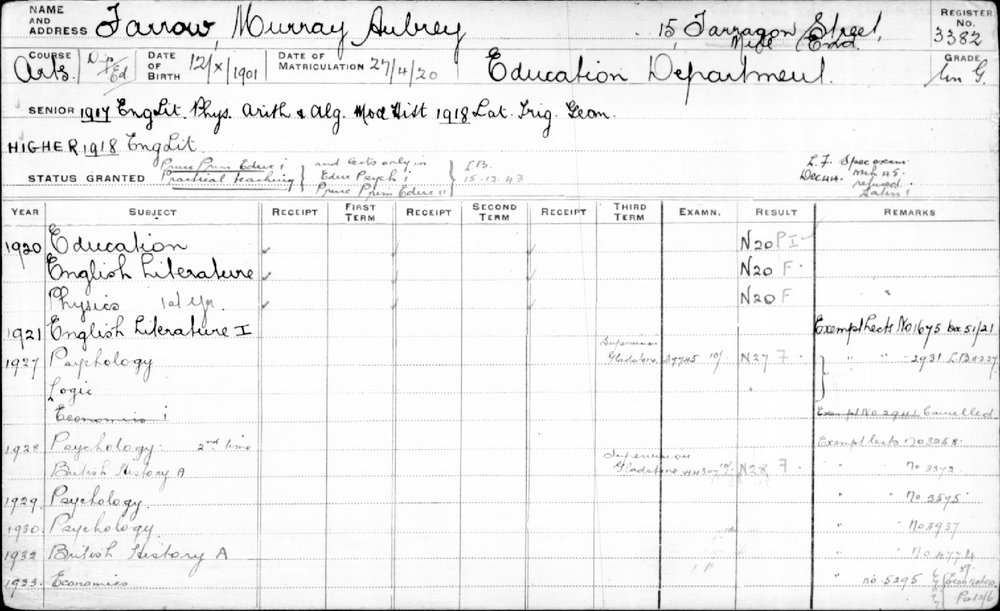 NAME AND ADDRESS Farrow, Murray Aubrey 15, Tarragon Street, Mile End. REGISTER No. 3382
COURSE Arts. Dip Ed DATE OF BIRTH 12/X/1901 DATE OF MATRICULATION 27/4/20 Education Department. GRADE Un G.
SENIOR 1917 Eng Lit. Phys. Arith & Alg. Mod Hist 1918 Lat. Trig. Geom.
HIGHER 1918 Eng Lit.
STATUS GRANTED Princ Prim Educ i
Practical teaching
and Lects only in
Educ Psych i
Princ Prim Educ ii
15.12.43
L.F. Spec exam
Dec 44. Mch 45.
refused:
Latin i
YEAR SUBJECT RECEIPT FIRST TERM RECEIPT SECOND TERM RECEIPT THIRD TERM EXAMN. RESULT REMARKS
1920 Education ✓ ✓ ✓ N20 P I
English Literature ✓ ✓ ✓ N20 F
Physics 1st Yr ✓ ✓ ✓ N20 F
1921 English Literature I Exempt Lects No 1675 51/21
1927 Psychology Supervision Gladstone 39745 10/ N27 F " " 2931
Logic
Economics i Exempt No 2941 Cancelled
1928 Psychology. 2nd time Exempt Lects no 3258.
British History A Supervision Gladstone N28 F " no 3372
1929 Psychology " " no 3595
1930 Psychology " " no 3937
1932 British History A " " no 4774
1933 Economics " no 5295